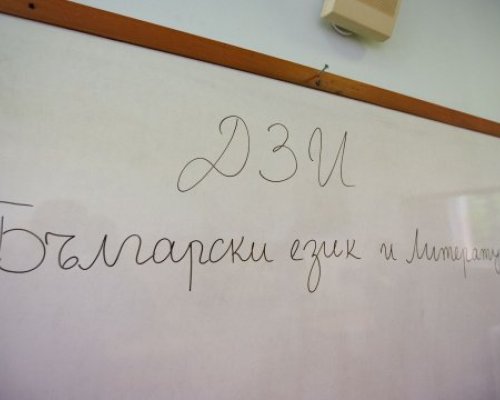 ДЗИ
Български език и Литерату